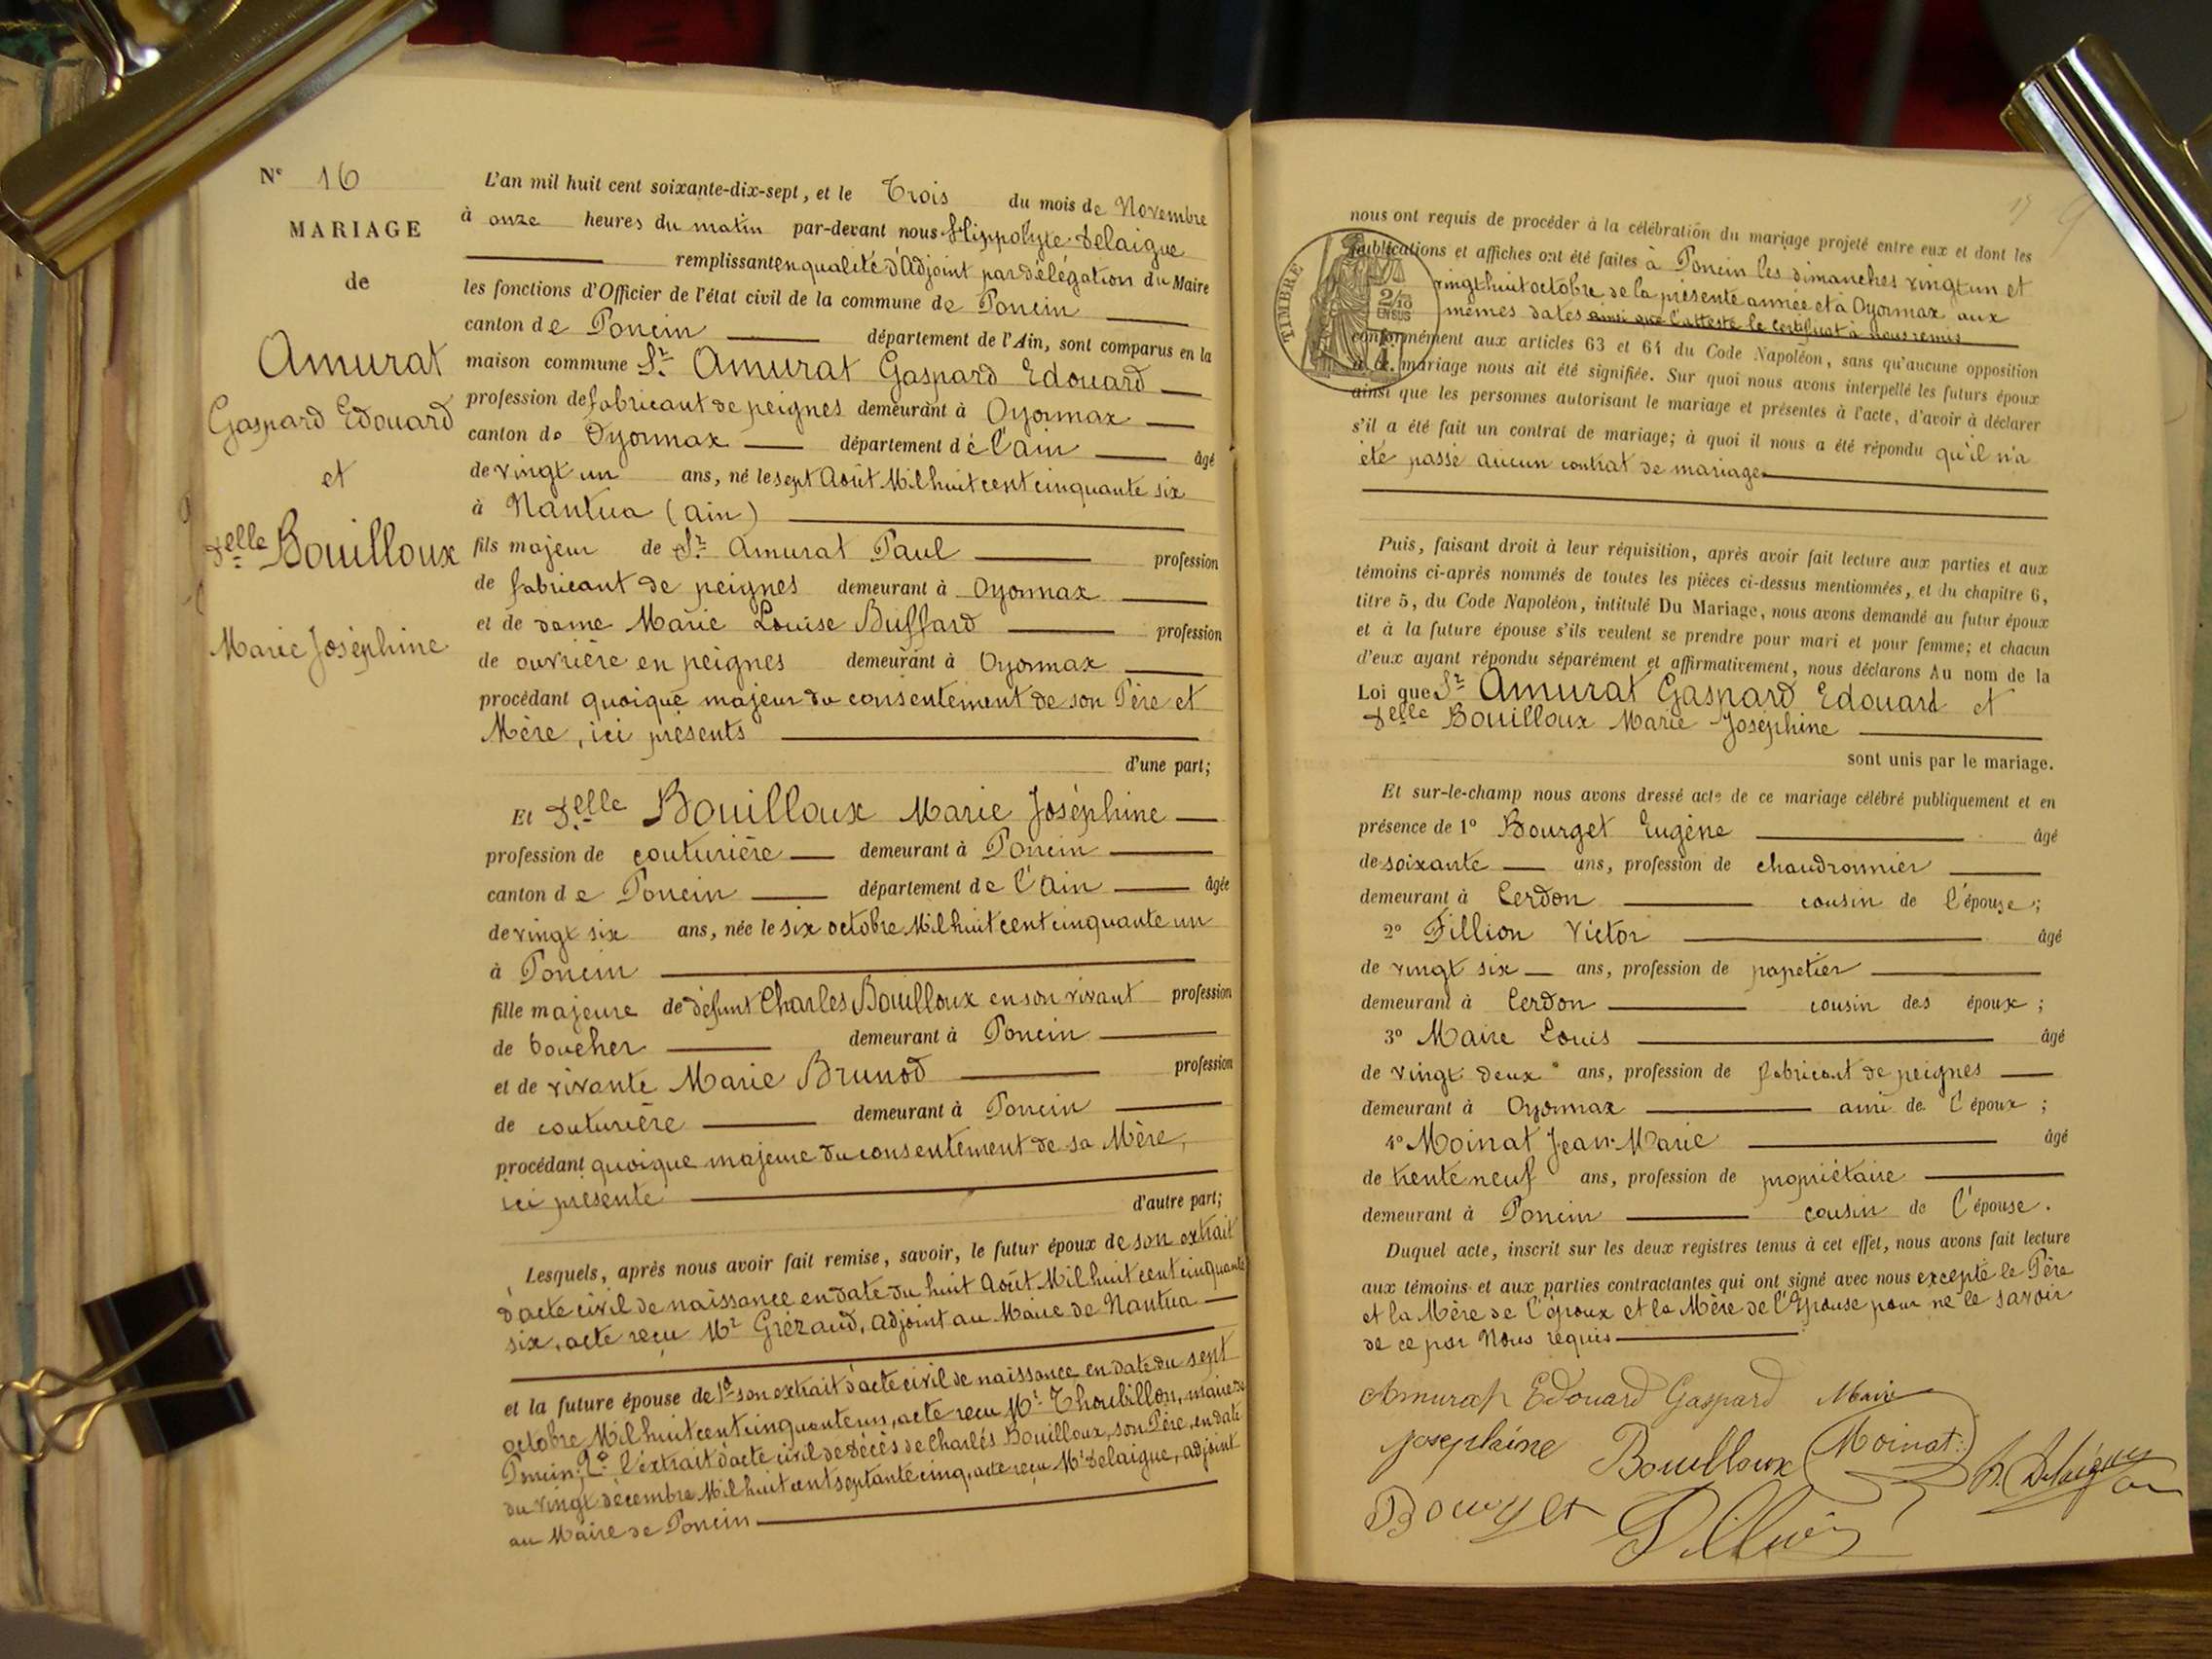 N° 16
MARIAGE
de
Amurat
Gaspard Edouard
et
Delle Bouilloux
Marie Joséphine
L'an mil huit cent soixante-dix-sept, et le Trois du mois de Novembre
à onze heures du matin par-devant nous Hippolyte Delaigue
remplissant en qualité d'Adjoint par délégation du Maire
les fonctions d'Officier de l'état civil de la commune de Poncin
canton de Poncin département de l'Ain, sont comparus en la
maison commune Sr Amurat Gaspard Edouard
profession de fabricant de peignes demeurant à Oyonnax
canton de Oyonnax département de l'ain âgé
de vingt un ans, né le sept Août Mil huit cent cinquante six
à Nantua (ain)
fils majeur de Sr Amurat Paul profession
de fabricant de peignes demeurant à Oyonnax
et de dame Marie Louise Buffard profession
de ouvrière en peignes demeurant à Oyonnax
procédant quoique majeur du consentement de son Père et
Mère, ici présents
d'une part;
Et Delle Bouilloux Marie Joséphine
profession de couturière demeurant à Poncin
canton de Poncin département de l'Ain âgée
de vingt six ans, née le six octobre Mil huit cent cinquante un
à Poncin
fille majeure de défunt Charles Bouilloux en son vivant profession
de boucher demeurant à Poncin
et de vivante Marie Brunod profession
de couturière demeurant à Poncin
procédant quoique majeure du consentement de sa Mère,
ici présente
d'autre part;
Lesquels, après nous avoir fait remise, savoir, le futur époux de son extrait
d'acte civil de naissance en date du huit Août Mil huit cent cinquante
six, acte reçu Mr Grézaud, adjoint au Maire de Nantua
et la future épouse de 1° son extrait d'acte civil de naissance en date du sept
octobre Mil huit cent cinquante un, acte reçu Mr Thoubillon, maire de
Poncin; 2° l'extrait d'acte civil de décès de Charles Bouilloux, son Père, en date
du vingt décembre Mil huit cent septante cinq, acte reçu Mr Delaigue, adjoint
au Maire de Poncin
nous ont requis de procéder à la célébration du mariage projeté entre eux et dont les
publications et affiches ont été faites à Poncin les dimanches vingt un et
vingt huit octobre de la présente année et à Oyonnax aux
mêmes dates ainsi que l'atteste le certificat à nous remis
conformément aux articles 63 et 64 du Code Napoléon, sans qu'aucune opposition
mariage nous ait été signifiée. Sur quoi nous avons interpellé les futurs époux
ainsi que les personnes autorisant le mariage et présentes à l'acte, d'avoir à déclarer
s'il a été fait un contrat de mariage; à quoi il nous a été répondu qu'il n'a
été passé aucun contrat de mariage
TIMBRE
2/10
EN SUS
Puis, faisant droit à leur réquisition, après avoir fait lecture aux parties et aux
témoins ci-après nommés de toutes les pièces ci-dessus mentionnées, et du chapitre 6,
titre 5, du Code Napoléon, intitulé Du Mariage, nous avons demandé au futur époux
et à la future épouse s'ils veulent se prendre pour mari et pour femme; et chacun
d'eux ayant répondu séparément et affirmativement, nous déclarons Au nom de la
Loi que Sr Amurat Gaspard Edouard et
Delle Bouilloux Marie Joséphine
sont unis par le mariage.
Et sur-le-champ nous avons dressé acte de ce mariage célébré publiquement et en
présence de 1° Bourget Eugène âgé
de soixante ans, profession de chaudronnier
demeurant à Cerdon cousin de l'épouse;
2° Fillion Victor âgé
de vingt six ans, profession de papetier
demeurant à Cerdon cousin des époux;
3° Maire Louis âgé
de vingt deux ans, profession de fabricant de peignes
demeurant à Oyonnax ami de l'époux;
4° Moinat Jean-Marie âgé
de trente neuf ans, profession de propriétaire
demeurant à Poncin cousin de l'épouse.
Duquel acte, inscrit sur les deux registres tenus à cet effet, nous avons fait lecture
aux témoins et aux parties contractantes qui ont signé avec nous excepté le Père
et la Mère de l'époux et la Mère de l'Epouse pour ne le savoir
de ce par Nous requis
Amurat Edouard Gaspard Maire
Josephine Bouilloux Moinat
Bourget Fillion H. Delaigue